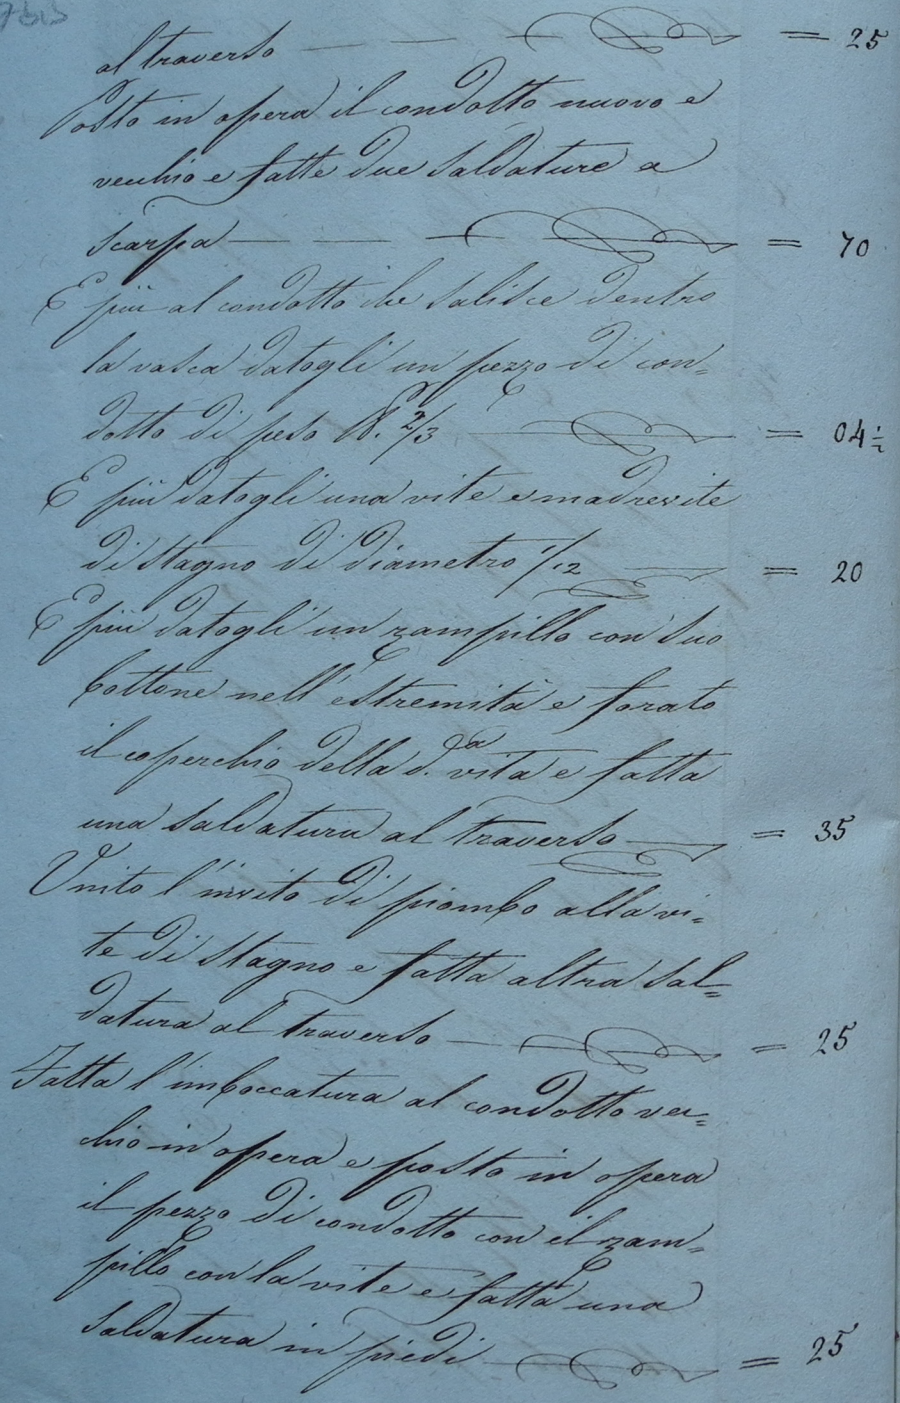 al traverso = 25
Posto in opera il condotto nuovo e
vecchio e fatte due saldature a
scarpa = 70
E più al condotto che salisce dentro
la vasca datogli un pezzo di con=
dotto di peso lb. 2/3 = 04 1/2
E più datogli una vite e madrevite
di stagno di diametro 1/12 = 20
E più datogli un zampillo con suo
bottone nell'estremità e forato
il coperchio della d.a vita e fatta
una saldatura al traverso = 35
Unito l'invito di piombo alla vi=
te di stagno e fatta altra sal=
datura al traverso = 25
Fatta l'imboccatura al condotto vec=
chio in opera e posto in opera
il pezzo di condotto con il zam=
pillo con la vite e fatta una
saldatura in piedi = 25